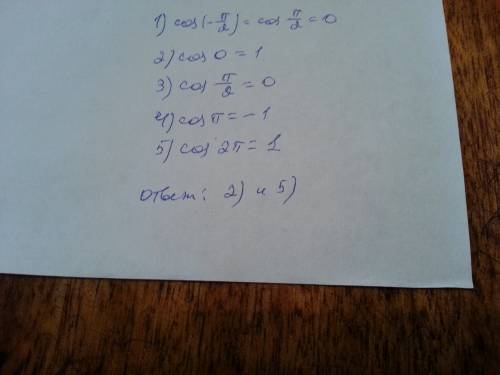 1) cos(-π/2) = cos π/2 = 0
2) cos 0 = 1
3) cos π/2 = 0
4) cos π = -1
5) cos 2π = 1
Ответ: 2) и 5)